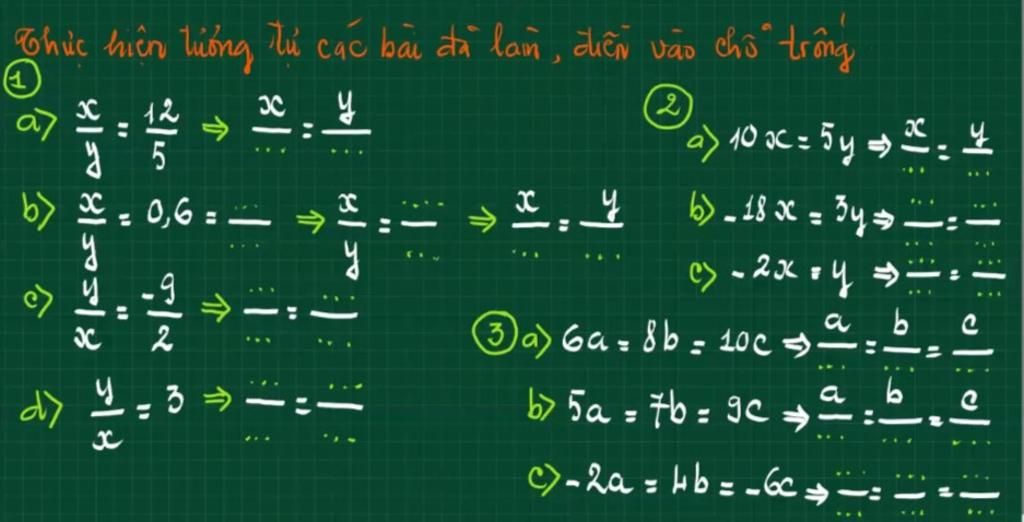 Thực hiện tương tự các bài đã làm, điền vào chỗ trống
①
a) x/y = 12/5 ⇒ x/... = y/...
b) x/y = 0,6 = .../... ⇒ x/y = .../... ⇒ x/... = y/...
c) y/x = -9/2 ⇒ .../... = .../...
d) y/x = 3 ⇒ .../... = .../...
②
a) 10x = 5y ⇒ x/... = y/...
b) -18x = 3y ⇒ .../... = .../...
c) -2x = y ⇒ .../... = .../...
③ a) 6a = 8b = 10c ⇒ a/... = b/... = c/...
b) 5a = 7b = 9c ⇒ a/... = b/... = c/...
c) -2a = 4b = -6c ⇒ .../... = .../... = .../...